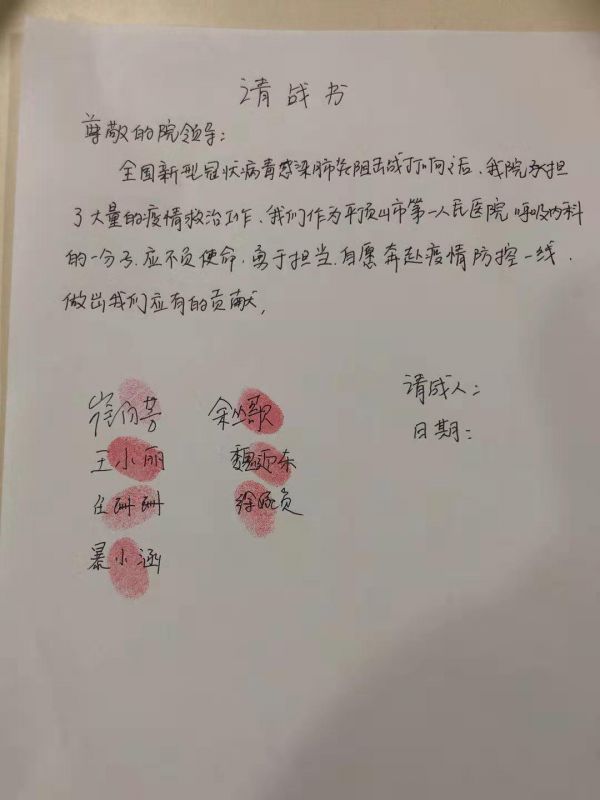 请战书
尊敬的院领导：
全国新型冠状病毒感染肺炎阻击战打响之后、我院承担
了大量的疫情救治工作、我们作为平顶山市第一人民医院呼吸内科
的一分子、应不负使命、勇于担当、自愿奔赴疫情防控一线、
做出我们应有的贡献，
请战人：
日期：
余丛歌
王小丽
任酬酬
暴小涵